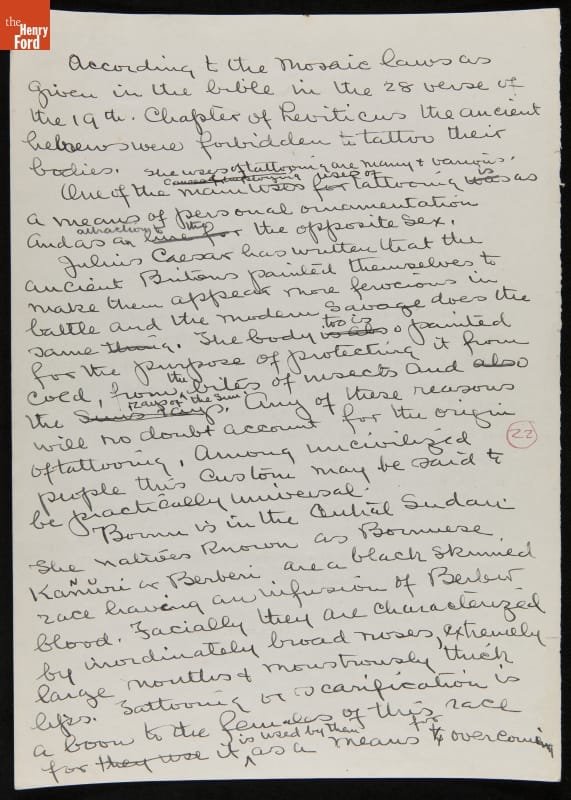 the
Henry
Ford
According to the Mosaic laws as
given in the bible in the 28 verse of
the 19th. Chapter of Leviticus the ancient
hebrews were forbidden to tattoo their
bodies. The uses of tattooing are many & various.
One of the main uses for uses of tattooing was is as
a means of personal ornamentation
and as an attraction to the the opposite sex.
Julius Caesar has written that the
ancient Britons painted themselves to
make them appear more ferocious in
battle and the modern Savage does the
same thing. The body is also too is painted
for the purpose of protecting it from
cold, from the bites of insects and also
the Suns rays rays of the Sun. Any of these reasons
will no doubt account for the origin
of tattooing. Among uncivilized
people this custom may be said to
be practically universal.
22
Bornu is in the Central Sudan.
The natives known as Bornuese
Kanŭri or Berberi are a black skinned
race having an infusion of Berber
blood. Facially they are characterized
by inordinately broad noses, extremely
large mouths & monstrously thick
lips. Tattooing or scarification is
a boon to the females of this race
for they use it is used by them as a means for overcoming